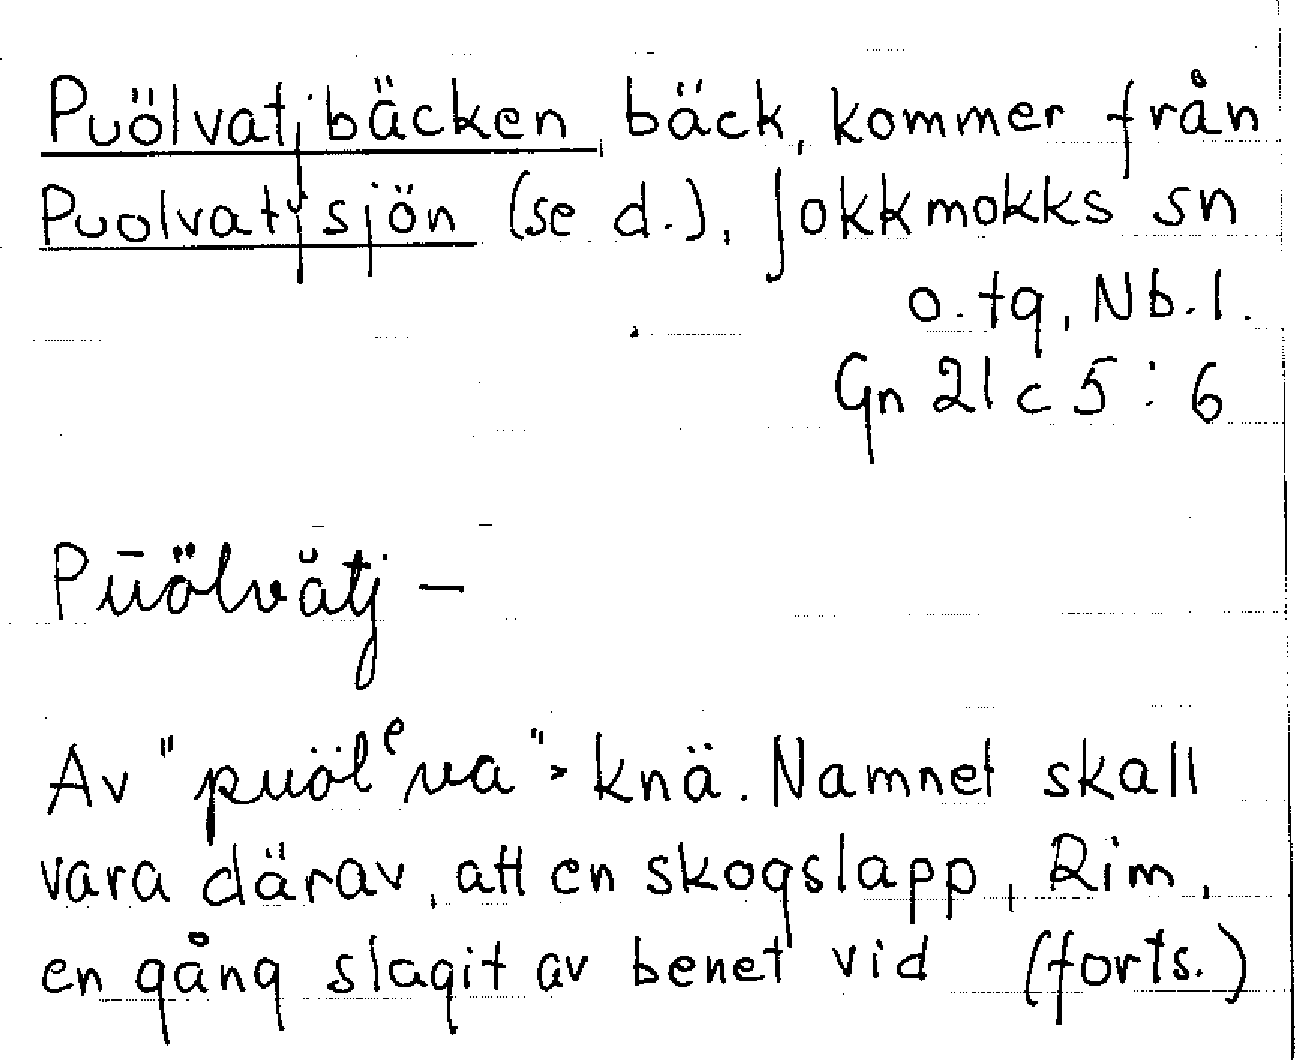 Puölvatjbäcken, bäck, kommer från
Puolvatjsjön (se d.), Jokkmokks sn
o. tg, Nb.l.
Gn 21 c 5:6
Pūölvătj –
Av "puölᵉva" > knä. Namnet skall
vara därav, att en skogslapp, Rim,
en gång slagit av benet vid (forts.)